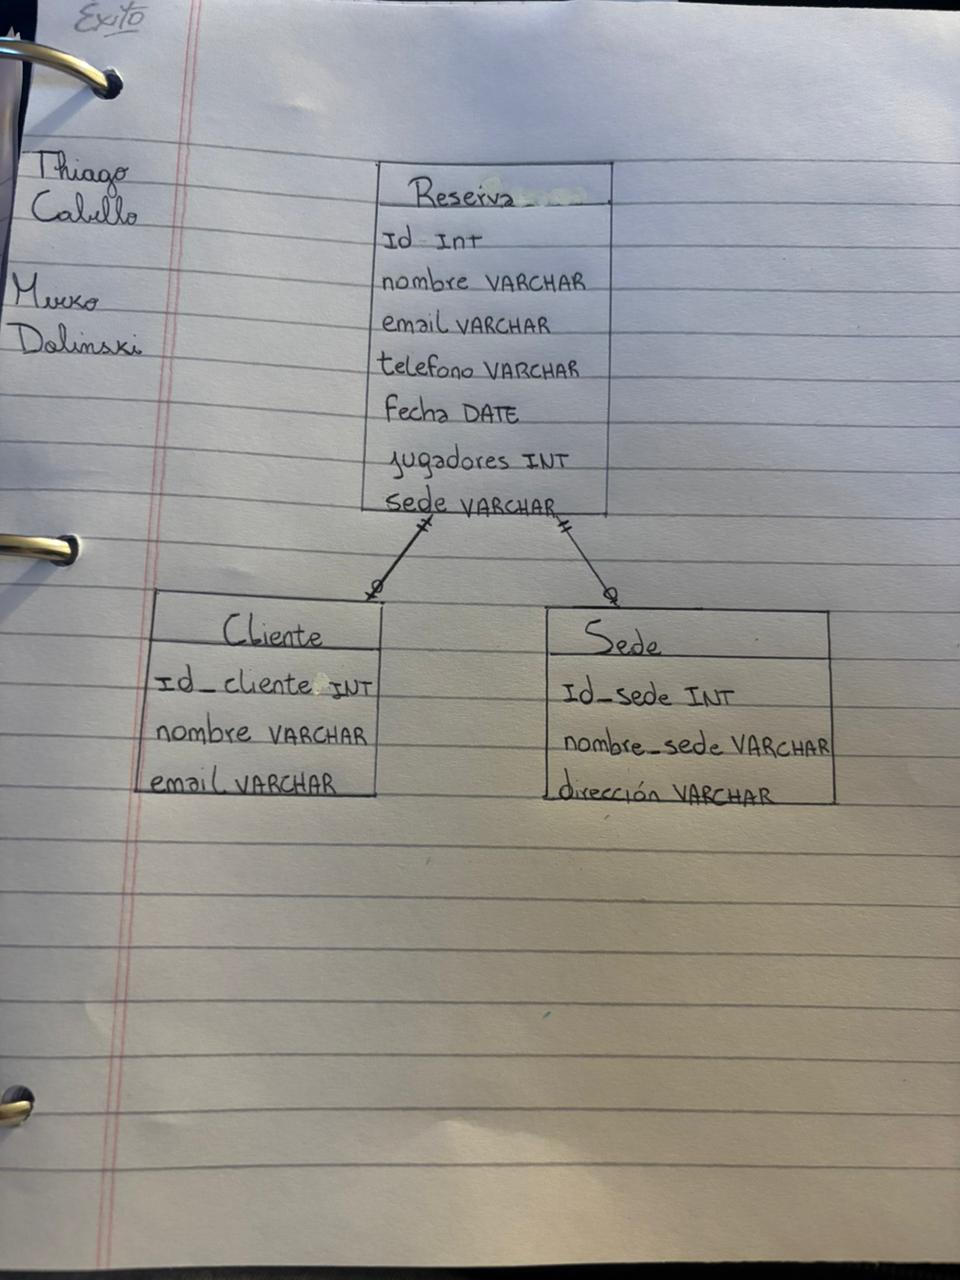 Exito
Thiago
Cabello
Mirko
Dolinski
Reserva
Id Int
nombre VARCHAR
email VARCHAR
telefono VARCHAR
fecha DATE
jugadores INT
sede VARCHAR
Cliente
Id_cliente INT
nombre VARCHAR
email VARCHAR
Sede
Id_sede INT
nombre_sede VARCHAR
dirección VARCHAR